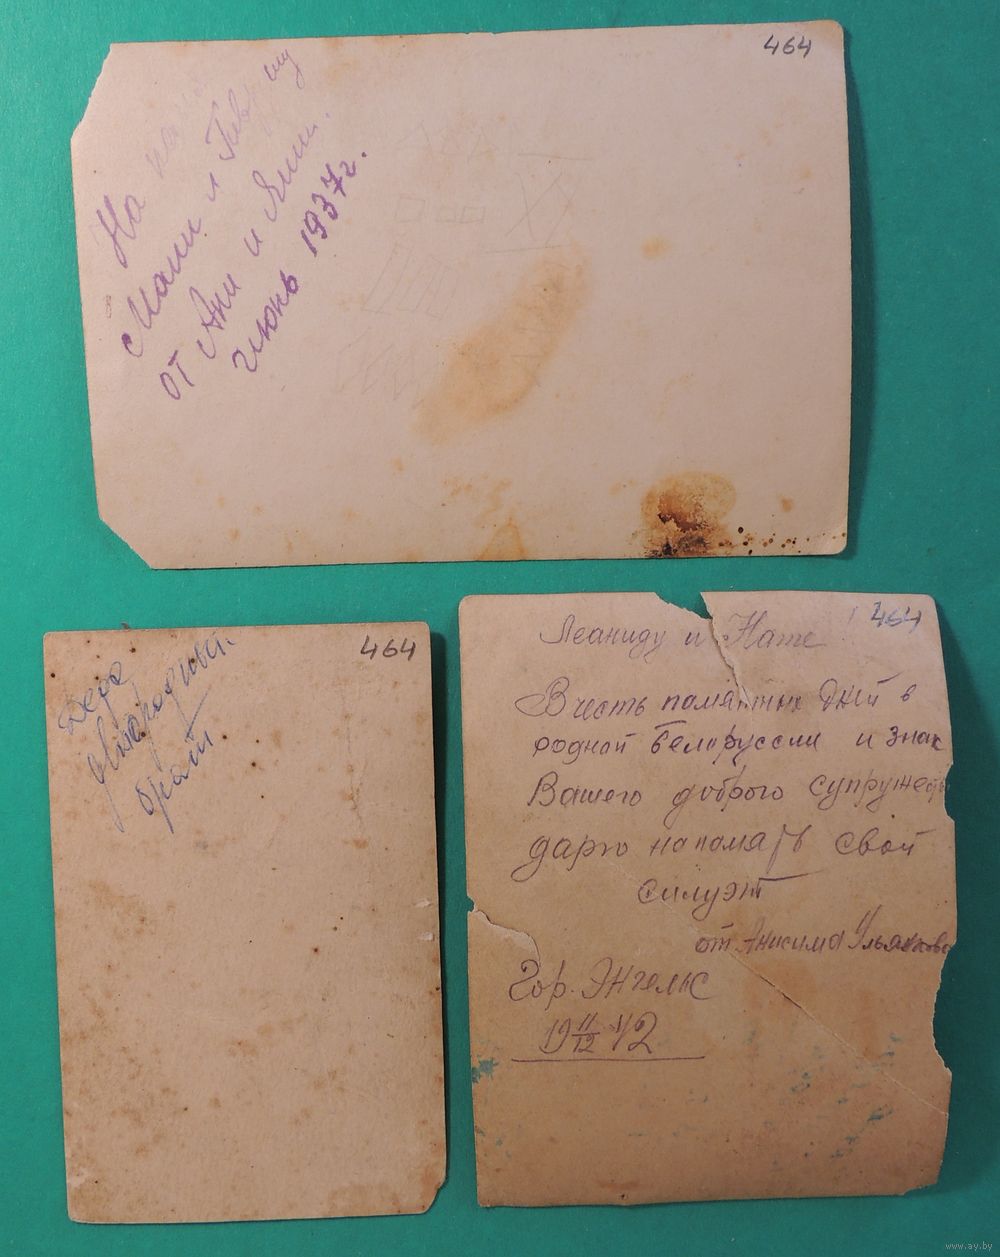 464
На
Маши и
от Ани и Яши.
июнь 1937г.
464
Деда
двоюродный
брат
464
Леаниду и Нате
В честь памятных дней в
родной белоруссии и знак
Вашего доброго супружеств
дарю на помять свой
силуэт
от Анисима Ульянова
Гор. Энгельс
19 11/12 42
www.ay.by